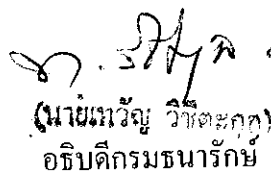 (นายเทวัญ วิชิตะกุล)
อธิบดีกรมธนารักษ์